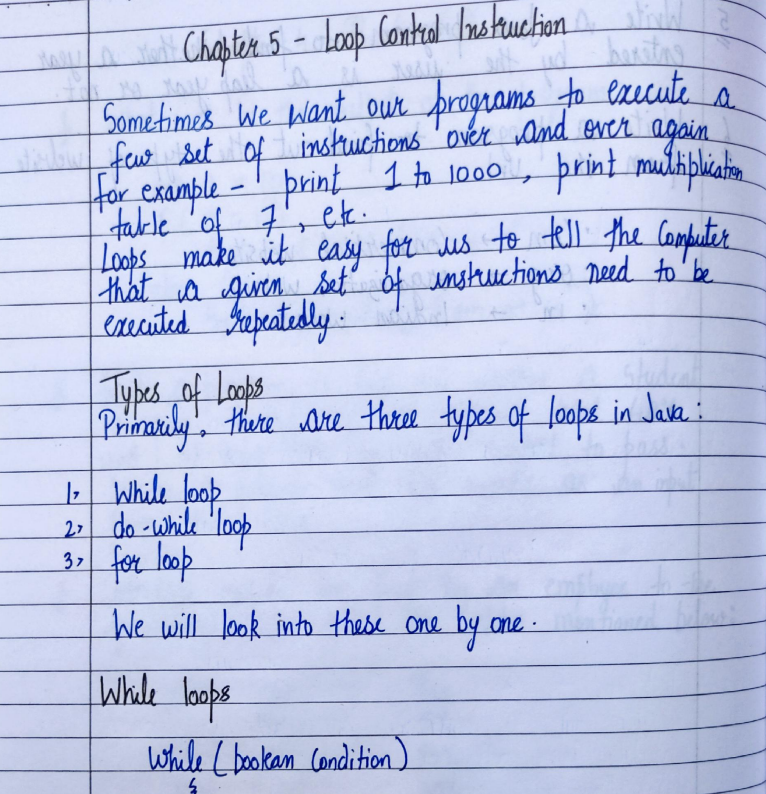 Chapter 5 - Loop Control Instruction
Sometimes we want our programs to execute a
few set of instructions over and over again
for example - print 1 to 1000, print multiplication
table of 7, etc.
Loops make it easy for us to tell the Computer
that a given set of instructions need to be
executed repeatedly.
Types of Loops
Primarily, there are three types of loops in Java:
1, While loop
2, do-while loop
3, for loop
We will look into these one by one.
While loops
While (boolean Condition)
{